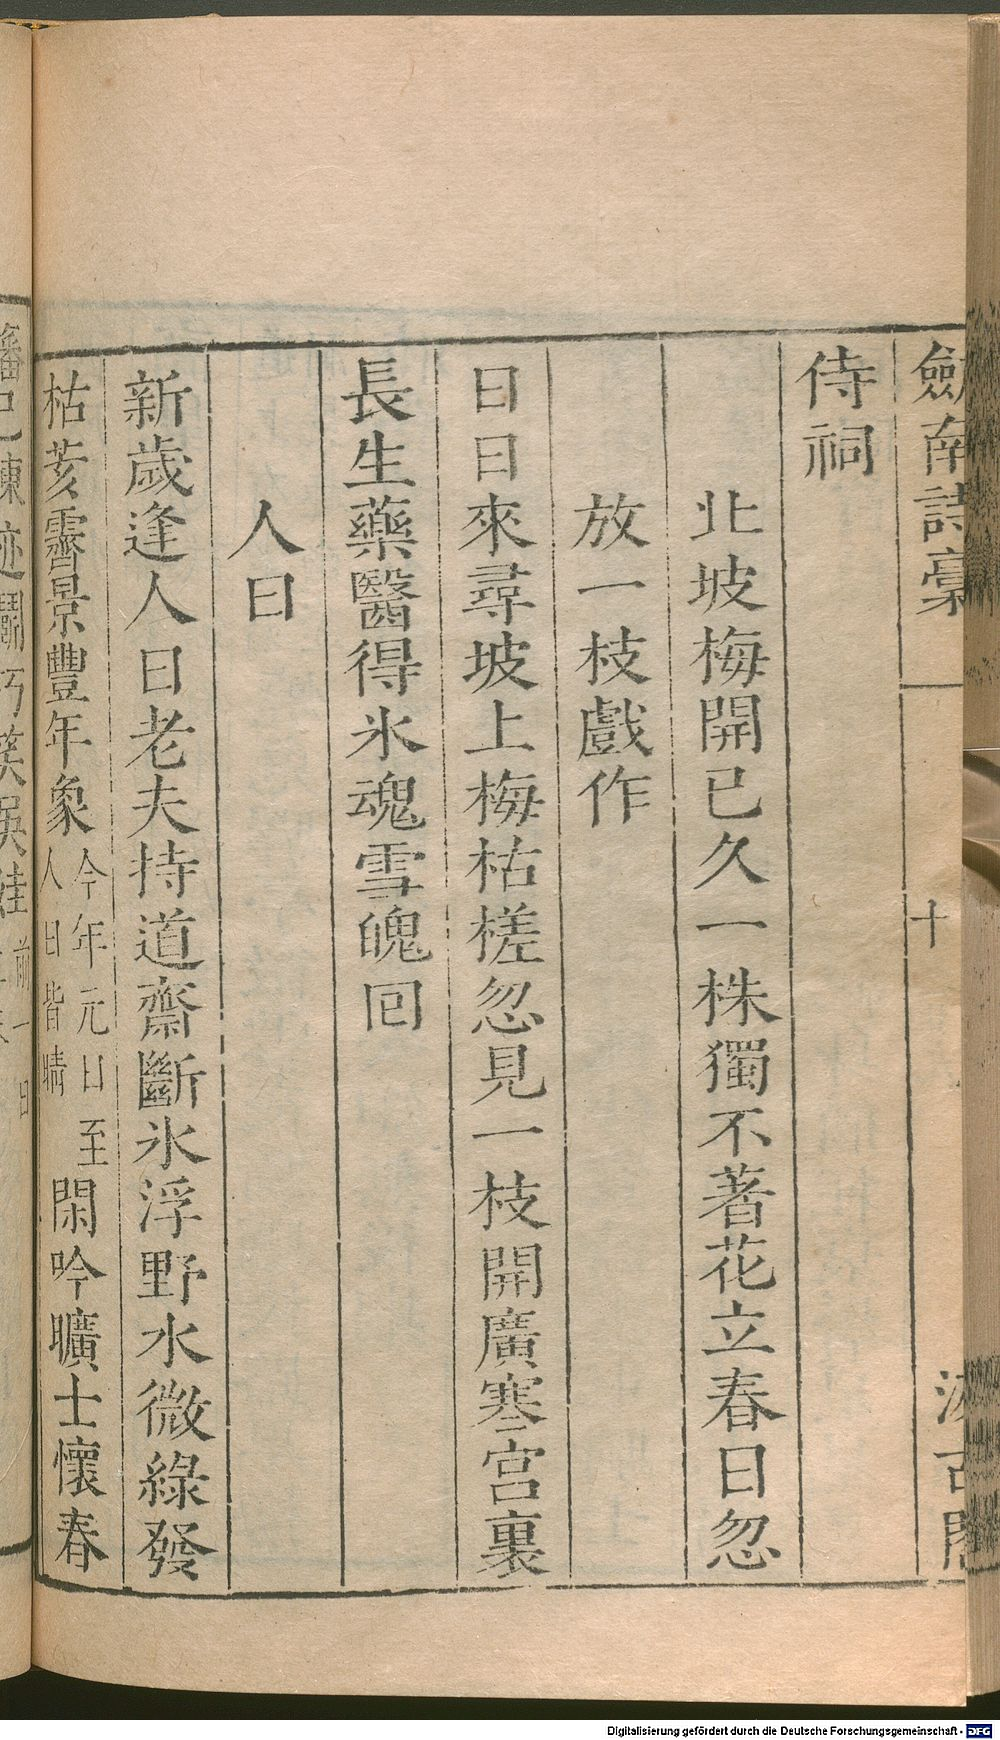 劔南詩稾
十
汲古閣
侍祠
北坡梅開已久一株獨不著花立春日忽
放一枝戲作
日日來尋坡上梅枯槎忽見一枝開廣寒宮裏
長生藥醫得氷魂雪魄囘
人日
新歲逢人日老夫持道齋斷氷浮野水微綠發
枯荄霽景豐年象今年元日至人日皆晴閑吟曠士懷春
Digitalisierung gefördert durch die Deutsche Forschungsgemeinschaft - DFG